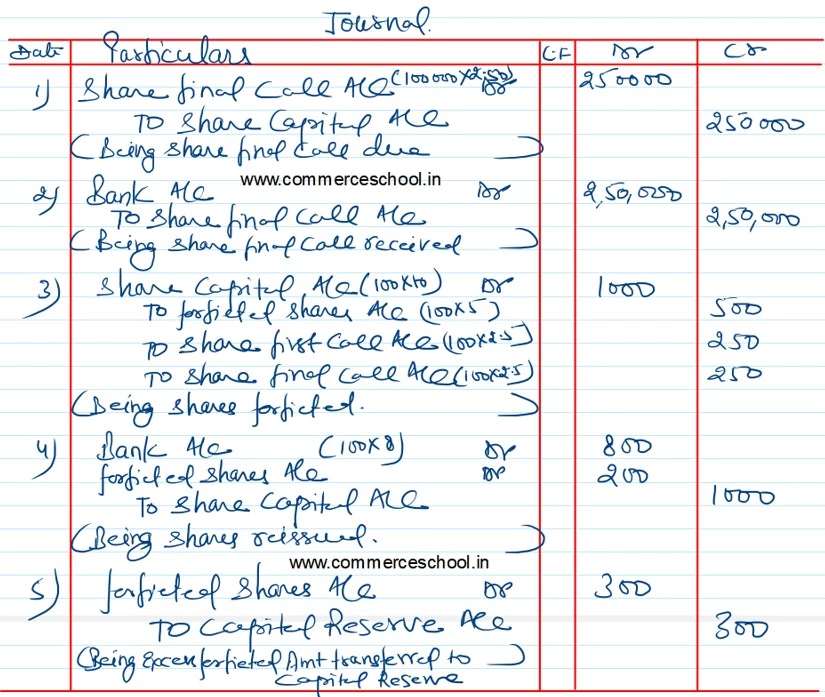 Journal.
Date Particulars LF Dr Cr
1) Share final Call A/c (100000×2.50) Dr 250000
To Share Capital A/c 250000
(Being share final Call due)
www.commerceschool.in
2) Bank A/c Dr 2,50,000
To Share final Call A/c 2,50,000
(Being share final Call received)
3) Share Capital A/c (100×10) Dr 1000
To forfieted shares A/c (100×5) 500
To Share first Call A/c (100×2.5) 250
To Share final Call A/c (100×2.5) 250
(Being shares forfieted.)
4) Bank A/c (100×8) Dr 800
forfieted shares A/c Dr 200
To Share Capital A/c 1000
(Being shares reissued.)
www.commerceschool.in
5) forfieted shares A/c Dr 300
To Capital Reserve A/c 300
(Being Excess forfieted Amt transferred to)
Capital Reserve